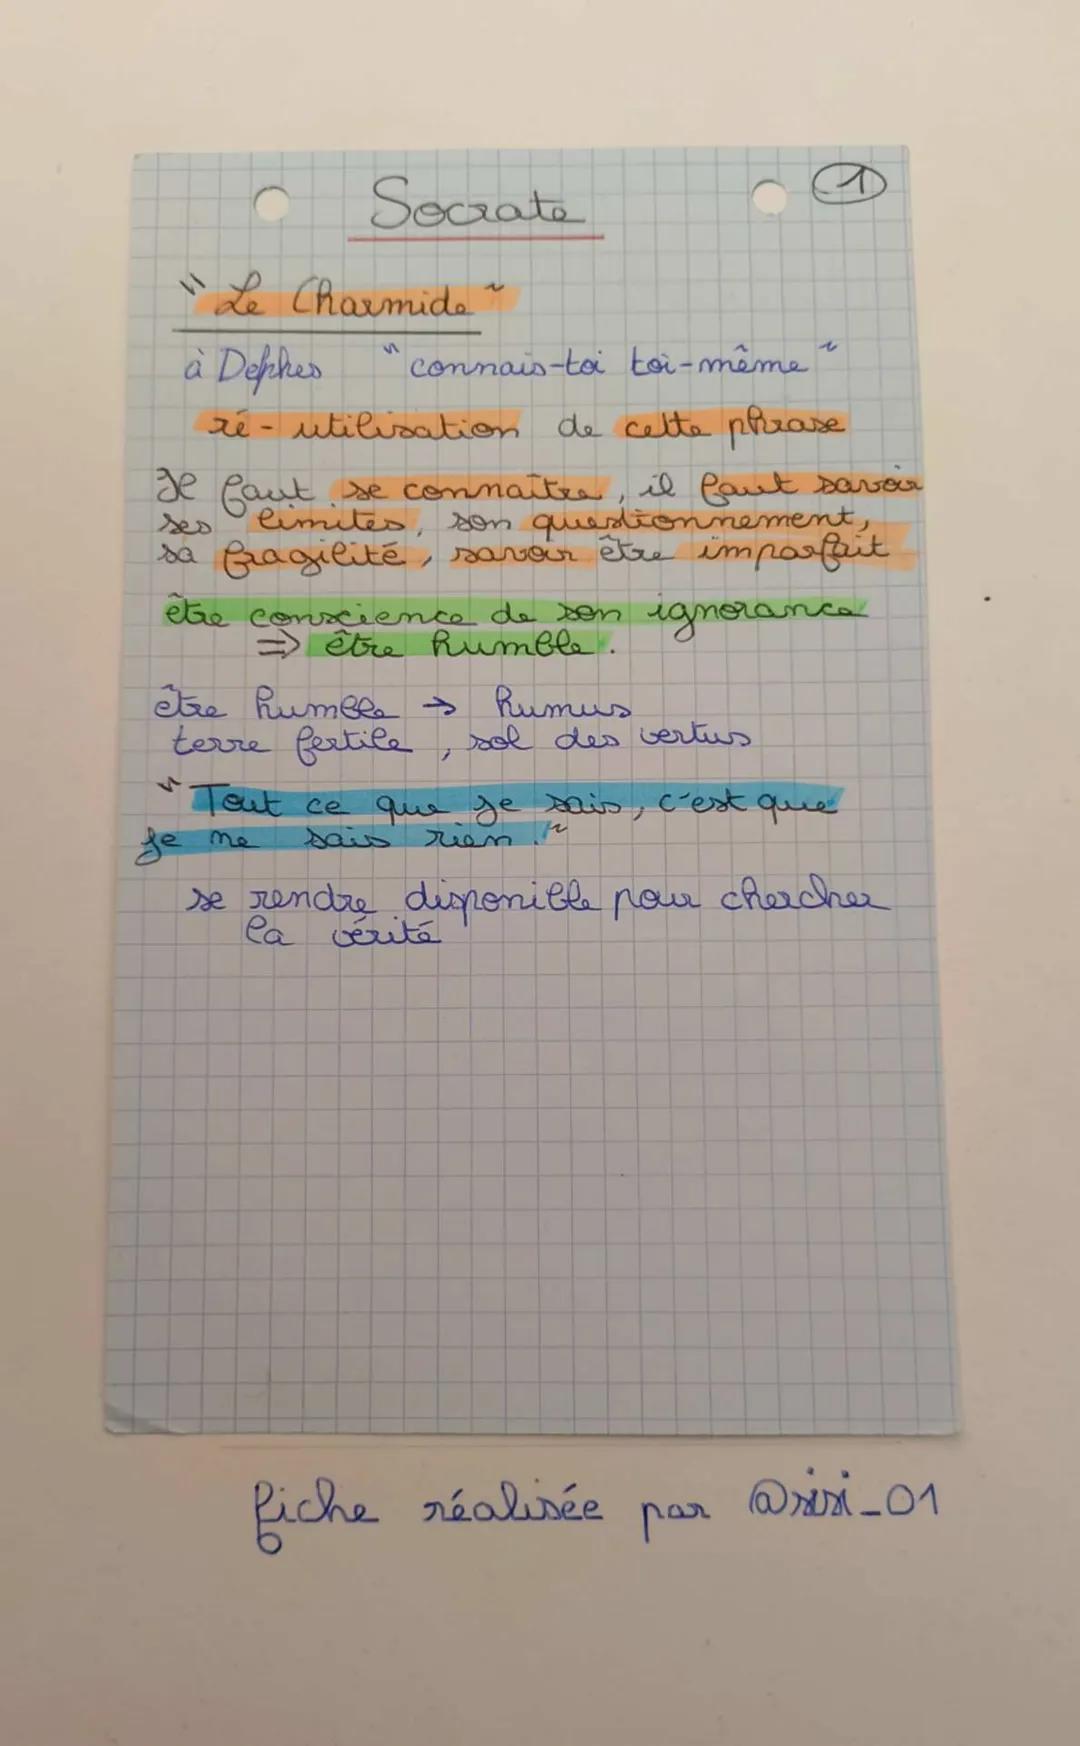 Socrate
1
"Le Charmide"
à Dephes "connais-toi toi-même"
ré-utilisation de cette phrase
Il faut se connaître, il faut savoir
ses limites, son questionnement,
sa fragilité, savoir être imparfait
être conscience de son ignorance
⇒ être humble.
être humble → humus
terre fertile, sol des vertus
"Tout ce que je sais, c'est que
je ne sais rien."
se rendre disponible pour chercher
la vérité
fiche réalisée par @sisi_01